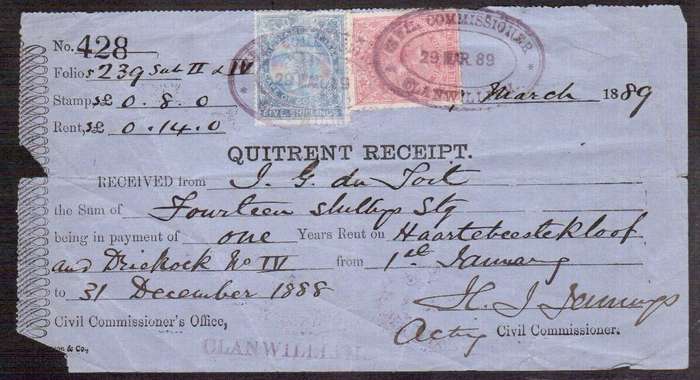 No. 428
Folios 239 Sub II & IV
Stamp, £ 0. 8. 0
Rent, £ 0. 14. 0
CIVIL COMMISSIONER
29 MAR 89
CLANWILLIAM
29 MAR 89
FIVE SHILLINGS
March 1889
QUITRENT RECEIPT.
RECEIVED from J. G. du Toit
the Sum of Fourteen shillgs Stg
being in payment of one Years Rent on Haartebeestekloof
and Driehoek No IV from 1st January
to 31 December 1888
H. J. Jennings
Civil Commissioner's Office, Actg Civil Commissioner.
CLANWILLIAM
& Co.